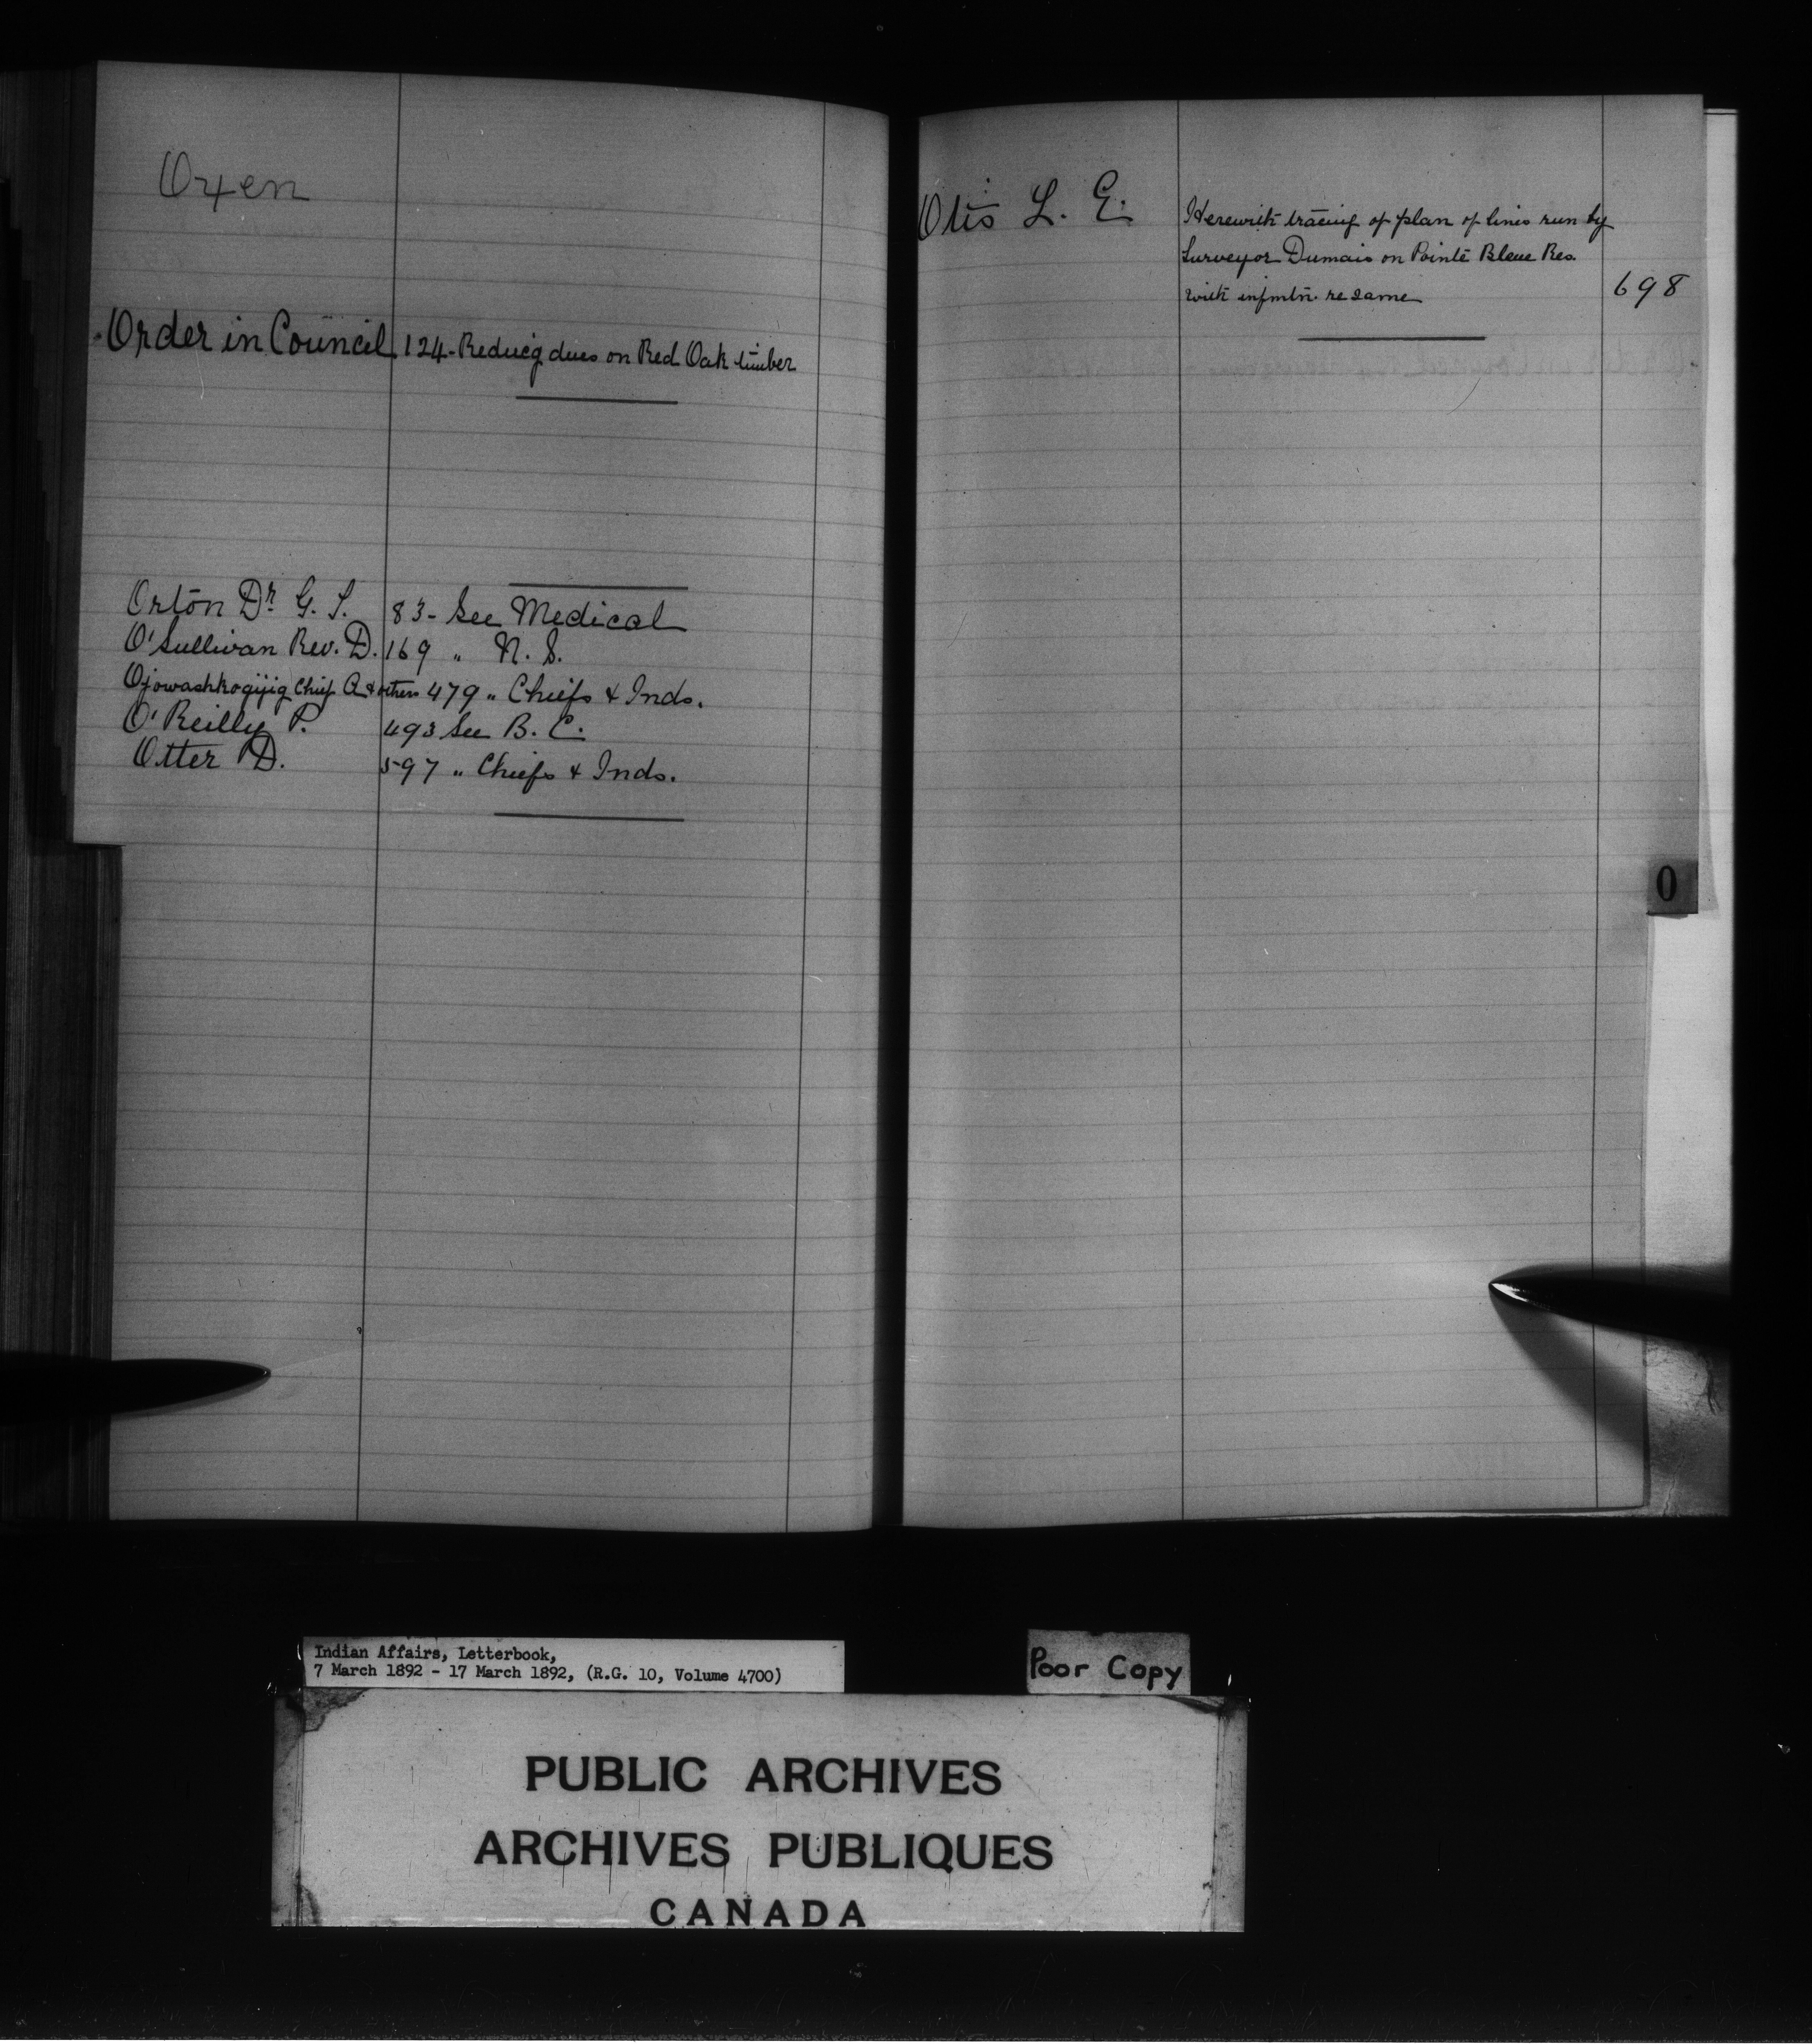 Oxen
Order in Council 124 - Reducg dues on Red Oak timber
Orton Dr. G. T. 83 - See Medical
O'Sullivan Rev. D. 169 " N. S.
Ojowashkogijig Chief A & others 479 " Chiefs & Inds.
O'Reilly P. 493 See B. C.
Otter D. 597 " Chiefs & Inds.
Otis L. E. Herewith tracing of plan of lines run by
Surveyor Dumais on Pointe Bleue Res.
with infmtn. re same 698
O
Indian Affairs, Letterbook,
7 March 1892 - 17 March 1892, (R.G. 10, Volume 4700)
Poor Copy
PUBLIC ARCHIVES
ARCHIVES PUBLIQUES
CANADA